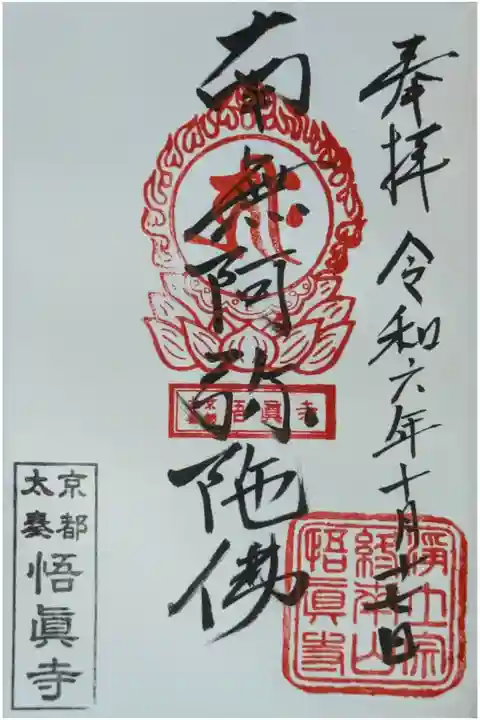 奉拝 令和六年十月廿七日
南無阿弥陀佛
京都 太秦 悟眞寺
浄土宗
終本山
悟眞寺
京都
太秦
悟眞寺